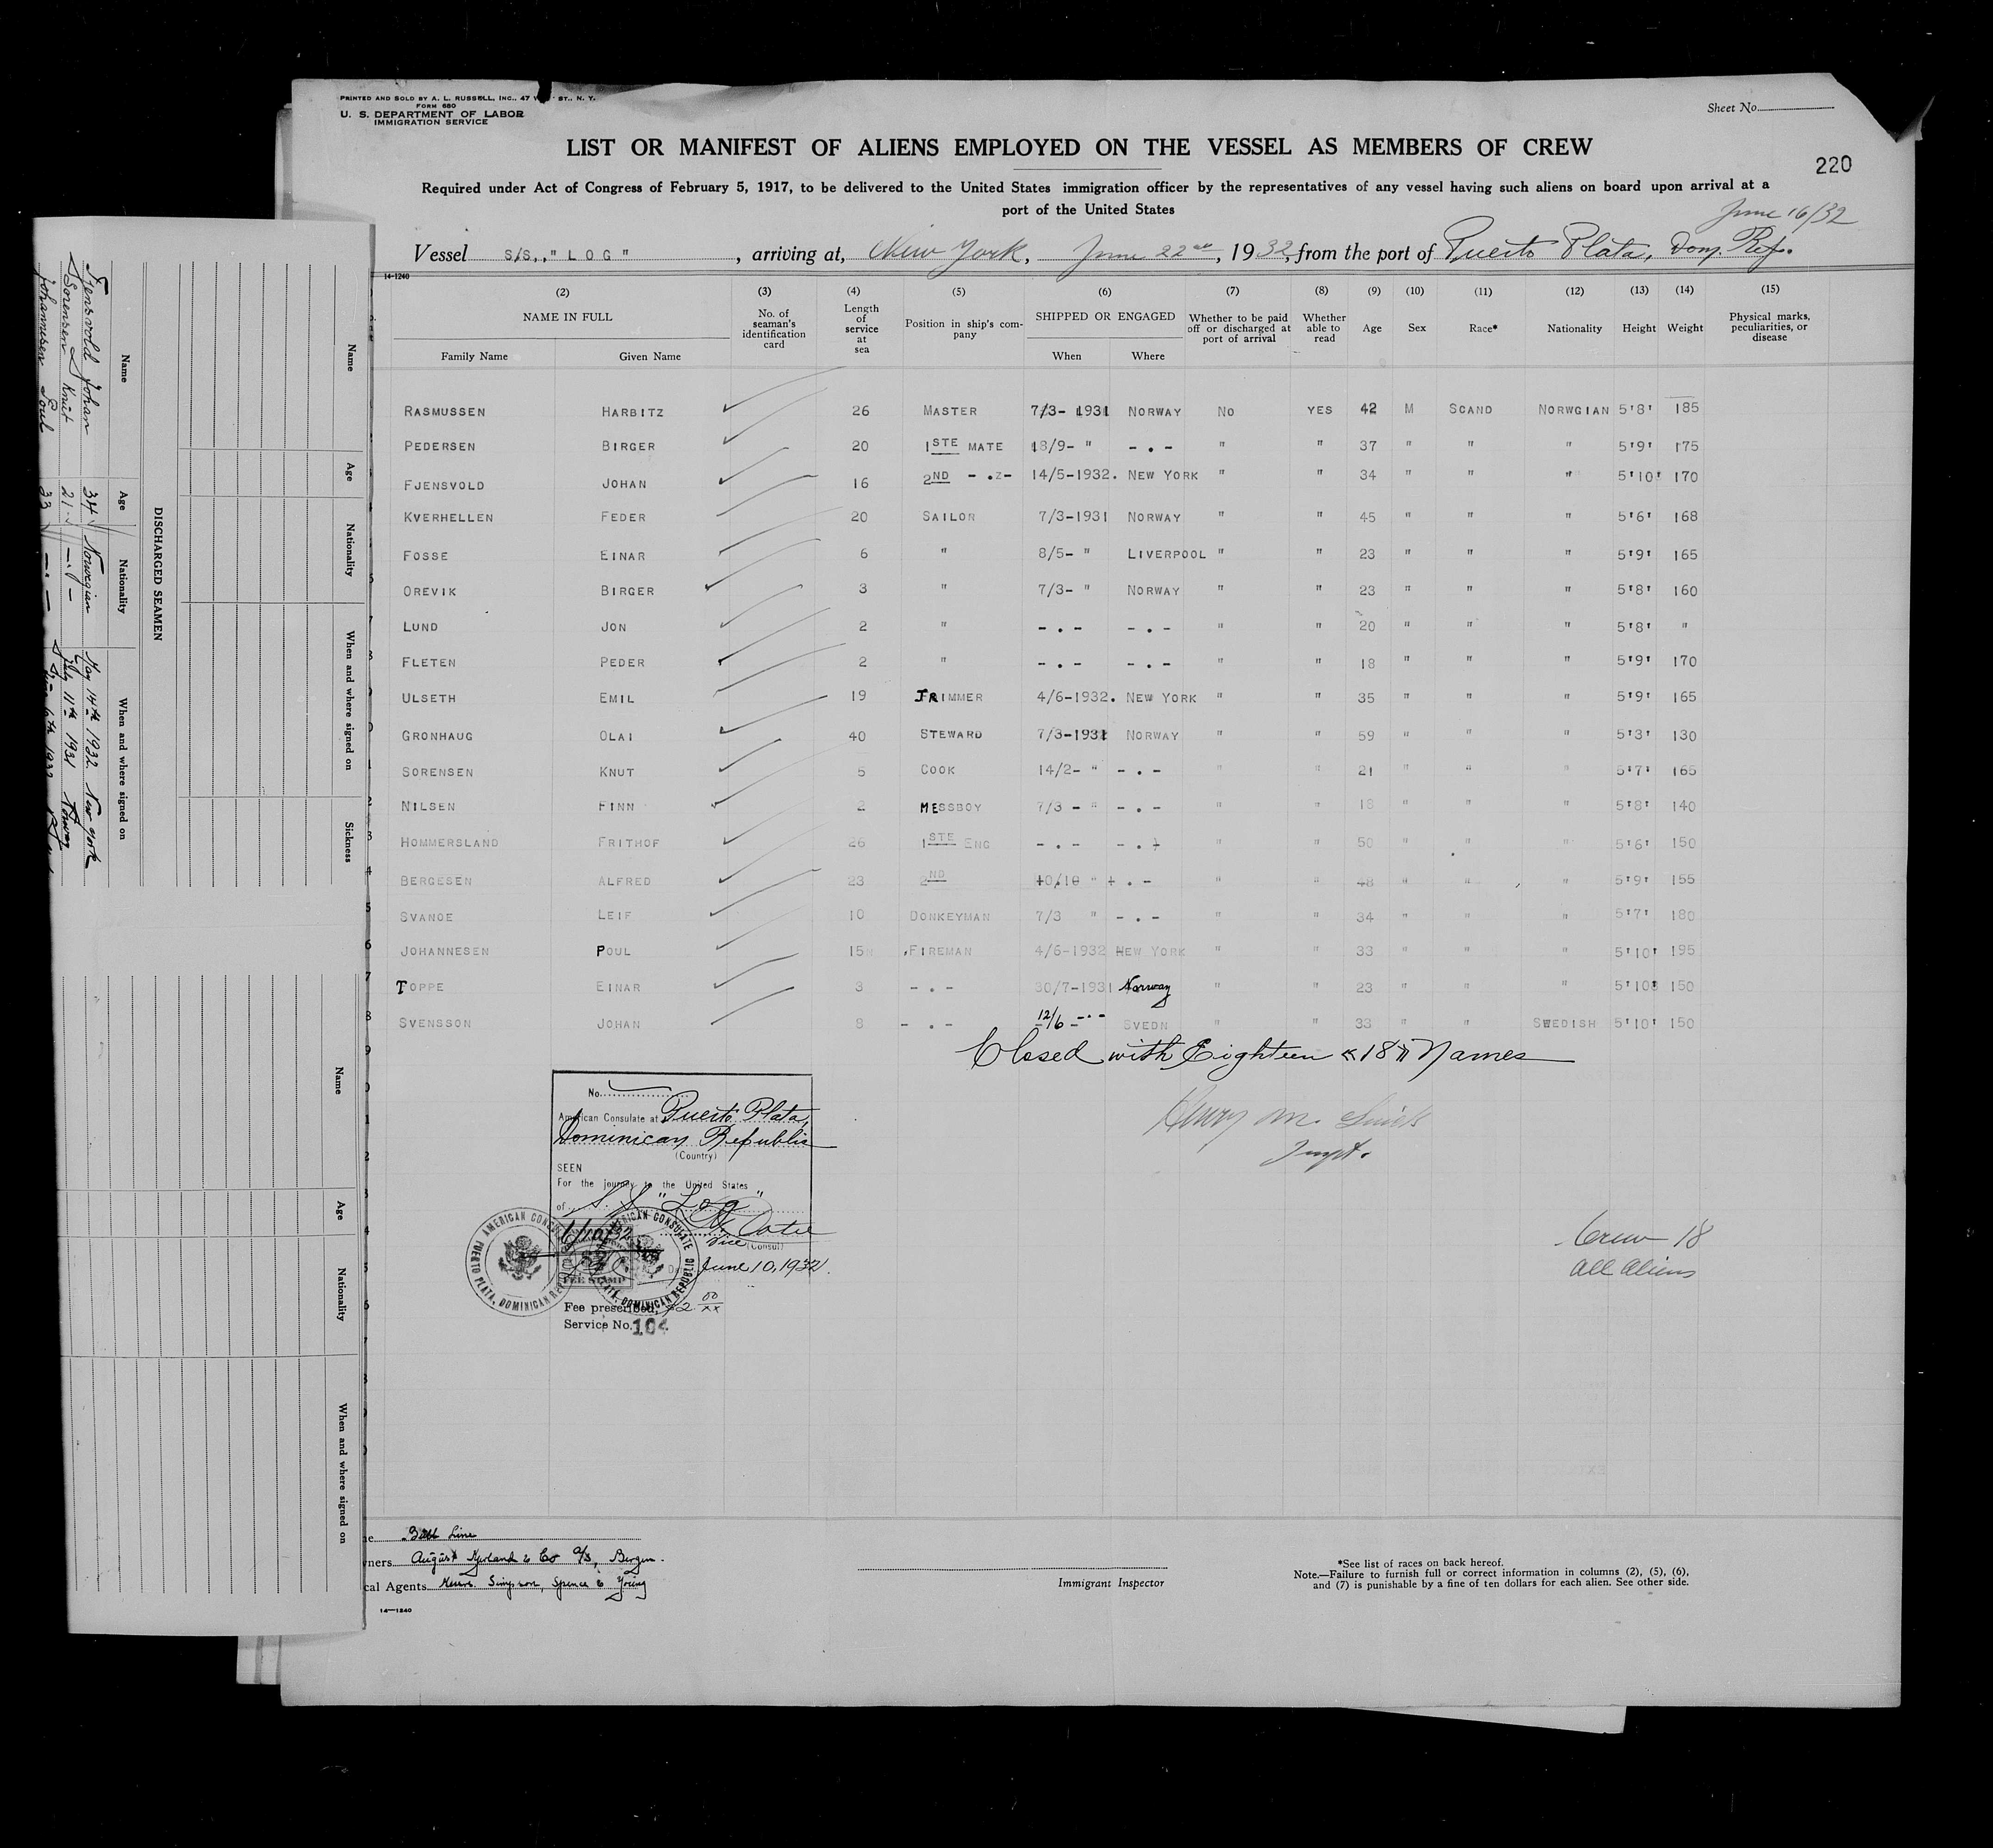 PRINTED AND SOLD BY A. L. RUSSELL, INC., 47 ST., N. Y.
FORM 680
U. S. DEPARTMENT OF LABOR
IMMIGRATION SERVICE
Sheet No.
LIST OR MANIFEST OF ALIENS EMPLOYED ON THE VESSEL AS MEMBERS OF CREW
220
Required under Act of Congress of February 5, 1917, to be delivered to the United States immigration officer by the representatives of any vessel having such aliens on board upon arrival at a
port of the United States
June 16/32
Vessel S/S,,"LOG", arriving at, New York, June 22nd, 1932, from the port of Puerto Plata, Dom. Rep.
14-1240
(2) (3) (4) (5) (6) (7) (8) (9) (10) (11) (12) (13) (14) (15)
NAME IN FULL No. of seaman's identification card Length of service at sea Position in ship's company SHIPPED OR ENGAGED Whether to be paid off or discharged at port of arrival Whether able to read Age Sex Race* Nationality Height Weight Physical marks, peculiarities, or disease
Family Name Given Name When Where
RASMUSSEN HARBITZ 26 MASTER 7/3- 1931 NORWAY NO YES 42 M SCAND NORWGIAN 5'8' 185
PEDERSEN BIRGER 20 1STE MATE 18/9- " - . - " " 37 " " " 5'9' 175
FJENSVOLD JOHAN 16 2ND - .z- 14/5-1932. NEW YORK " " 34 " " " 5'10' 170
KVERHELLEN FEDER 20 SAILOR 7/3-1931 NORWAY " " 45 " " " 5'6' 168
FOSSE EINAR 6 " 8/5- " LIVERPOOL " " 23 " " " 5'9' 165
OREVIK BIRGER 3 " 7/3- " NORWAY " " 23 " " " 5'8' 160
LUND JON 2 " - . - - . - " " 20 " " " 5'8' "
FLETEN PEDER 2 " - . - - . - " " 18 " " " 5'9' 170
ULSETH EMIL 19 TRIMMER 4/6-1932. NEW YORK " " 35 " " " 5'9' 165
GRONHAUG OLAI 40 STEWARD 7/3-1931 NORWAY " " 59 " " " 5'3' 130
SORENSEN KNUT 5 COOK 14/2- " - . - " " 21 " " " 5'7' 165
NILSEN FINN 2 MESSBOY 7/3 - " - . - " " 18 " " " 5'8' 140
HOMMERSLAND FRITHOF 26 1STE ENG - . - - . - " " 50 " " " 5'6' 150
BERGESEN ALFRED 23 2ND 10/10 " - . - " " 48 " " " 5'9' 155
SVANOE LEIF 10 DONKEYMAN 7/3 " - . - " " 34 " " " 5'7' 180
JOHANNESEN POUL 15 FIREMAN 4/6-1932 NEW YORK " " 33 " " " 5'10' 195
TOPPE EINAR 3 - . - 30/7-1931 Norway " " 23 " " " 5'10' 150
SVENSSON JOHAN 8 - . - 12/6 -.- SVEDN " " 33 " " SWEDISH 5'10' 150
Closed with Eighteen «18» Names
Henry M.
Inspt.
No.
American Consulate at Puerto Plata,
Dominican Republic
(Country)
SEEN
For the journey to the United States
of S. S. "Log"
Vice (Consul)
June 10, 1932.
FEE STAMP
AMERICAN CONSULATE
PUERTO PLATA, DOMINICAN REPUBLIC
Fee prescribed, $2 00/xx
Service No. 104
Crew 18
All Aliens
Line
Owners August & Co A/S, Bergen.
cal Agents Messrs. Simpson, Spence & Young
14—1240
Immigrant Inspector
*See list of races on back hereof.
Note.—Failure to furnish full or correct information in columns (2), (5), (6),
and (7) is punishable by a fine of ten dollars for each alien. See other side.
DISCHARGED SEAMEN
Name Age Nationality When and where signed on
Fjensvold Johan 34 Norwegian May 14th 1932 New York
Sorensen Knut 21 -.- July 11th 1931 Norway
Johannesen Poul 33 -.-
Name Age Nationality When and where signed on Sickness
Name Age Nationality When and where signed on